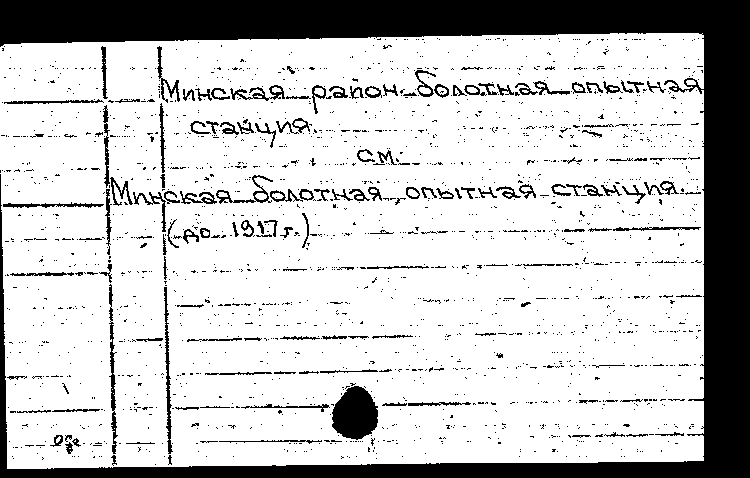 Минская район. болотная опытная
станция.
см.
Минская болотная опытная станция.
(до 1917 г.)